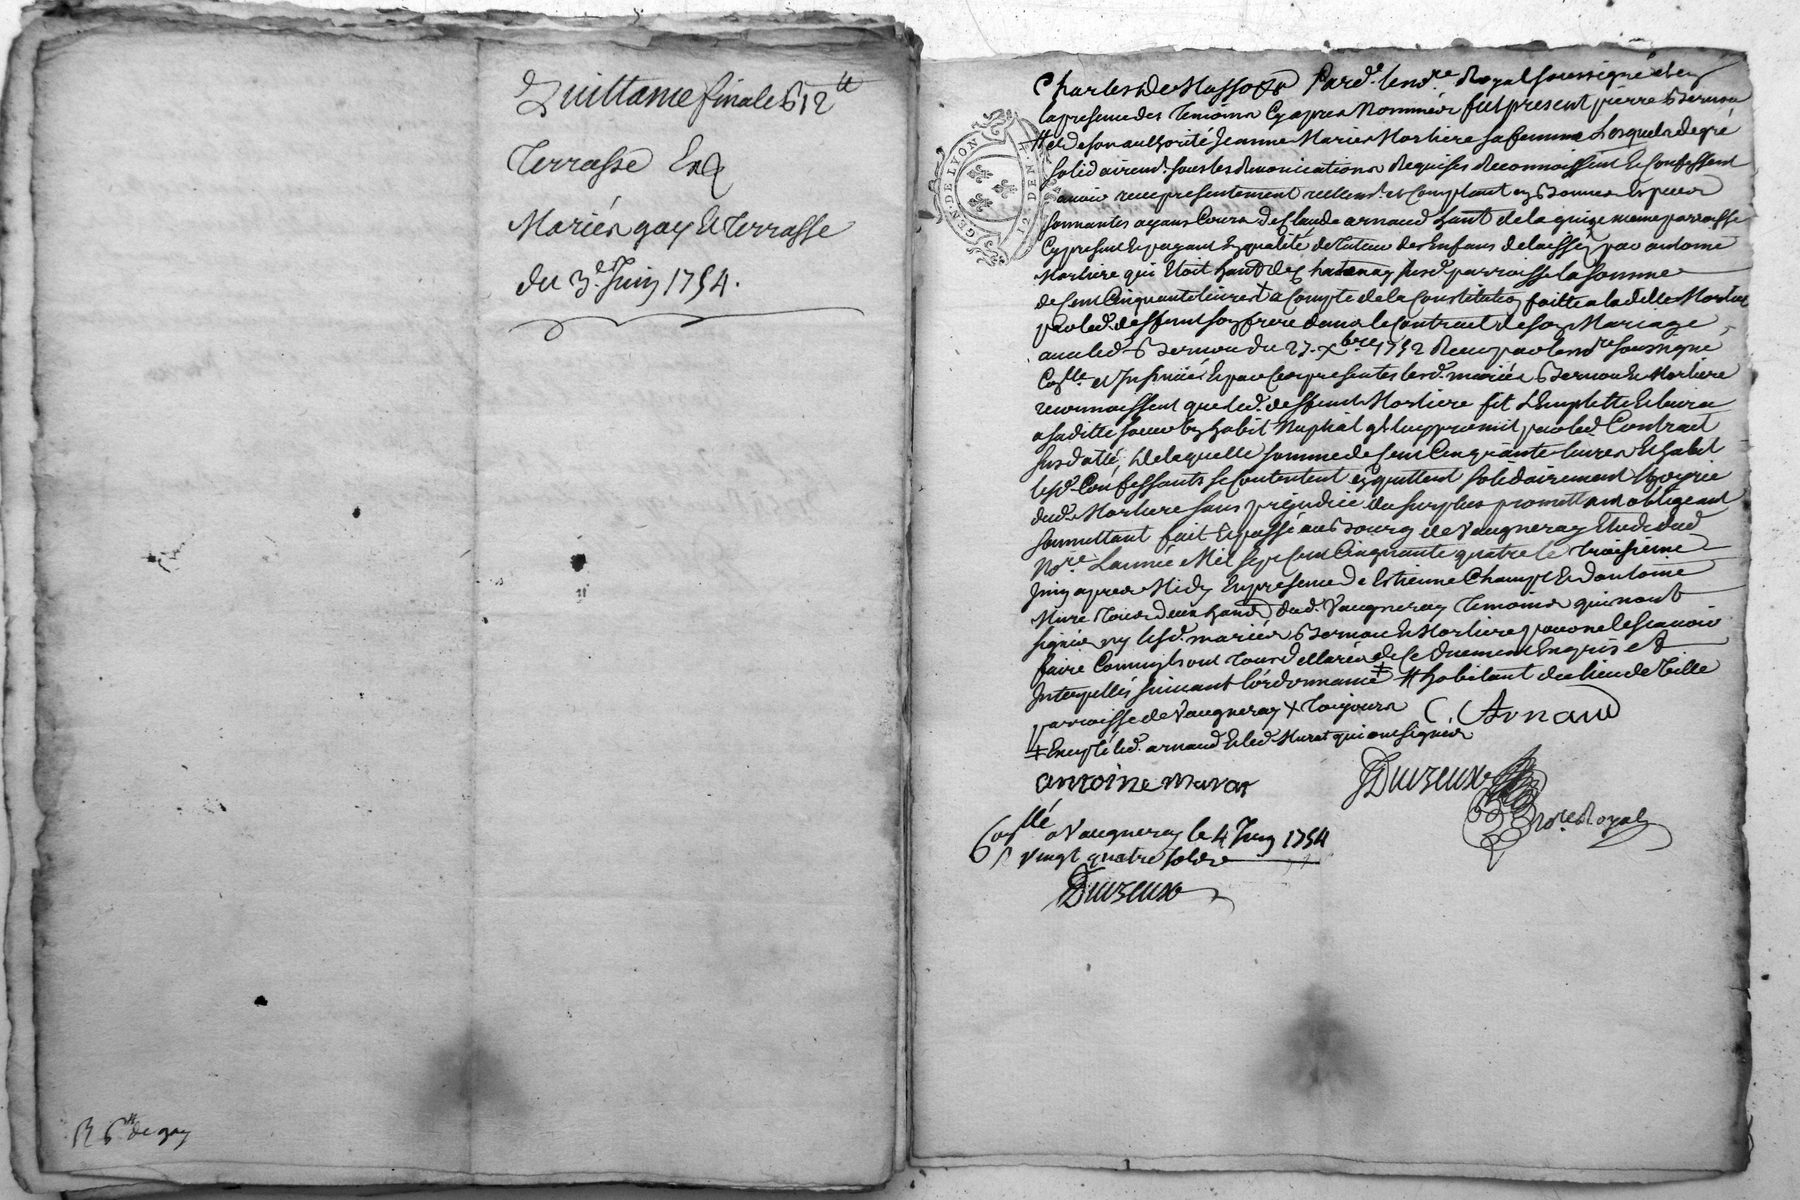 Quittance finale 612 ₶
Terrasse
Mariés gay et Terrasse
du 3.e Juin 1754.
R 6 ₶ de gay
GEN. DE LYON 12 DEN.
Pard.t le no.re Royal soussigné et en
la presence des temoins cy apres nommés fut present pierre Bernou
# et de son authorité Jeanne Marie Morliere sa femme Lesquels de gré
solidairem.t sous les renonciations requises reconnoissent et confessent
avoir receu presentement reellem.t et comptant en bonnes especes
sonnantes ayans cours de Claude arnaud hant de la paroisse
cy present et payant en qualité de tuteur des enfans delaissés par antoine
Morliere qui etoit hant de susd. parroisse la somme
de cent cinquante livres à compte de la constitution faitte a la ditte Morliere
par led. deffunt son frere dans le contract de son Mariage
avec led. Bernou du 27. xbre 1752 receu par le no.re soussigné
Coll.e et Insinué et par ces presentes lesd. mariés Bernou et Morliere
reconnoissent que led. deffunt Morliere fit l'emplette et livra
a sa ditte soeur l'habit nuptial qu'il luy promit par led. Contract
susdatté de laquelle somme de cent cinquante livres et habit
lesd. Confessants se contentent en quittent solidairement l'hoyrie
dud. Morliere sans prejudice du surplus promettant obligeant
soumettant fait et passé au Bourg de Vaugneray Etude dud
No.re L'année Mil sept cent cinquante quatre le troisieme
Juin apres Midy En presence de Estienne Champt et d'antoine
Muré tous deux hants dud. Vaugneray temoins qui n'ont
signés ny lesd. mariés Bernou et Morliere pour ne le scavoir
faire comm'ils ont tous declarés de ce duement enquis et
Interpellés suivant l'ordonnance # habitant du lieu de Tille
parroisse de Vaugneray X Toujours C. Arnaud
‡ Excepté led. arnaud et led. Muret qui ont signés
antoine murat Duvzeux
No.re Royal
Co.llé a Vaugneray le 4 Juin 1754
R vingt quatre sols
Duvzeux